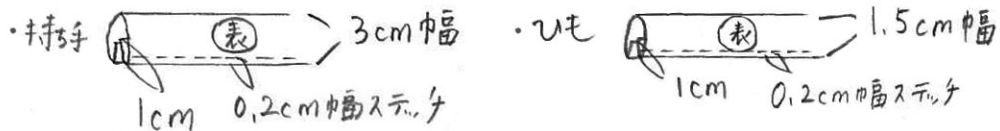 ・持ち手 表 3cm幅
1cm 0.2cm幅ステッチ
・ひも 表 1.5cm幅
1cm 0.2cm幅ステッチ